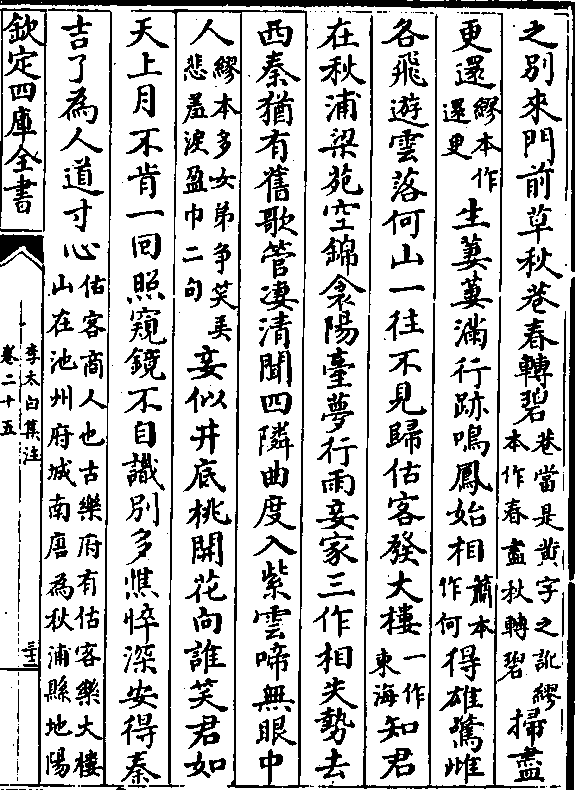 之別來門前草秋巷春轉碧巷當是黃字之訛繆本作春盡秋轉碧掃盡
更還繆本作還更生萋萋滿行跡鳴鳳始相蕭本作何得雄驚雌
各飛遊雲落何山一往不見歸估客發大樓一作東海知君
在秋浦梁苑空錦衾陽臺夢行雨妾家三作相失勢去
西秦猶有舊歌管淒清聞四隣曲度入紫雲啼無眼中
人繆本多女弟爭笑弄悲羞淚盈巾二句妾似井底桃開花向誰笑君如
天上月不肯一回照窺鏡不自識別多憔悴深安得秦
吉了為人道寸心估客商人也古樂府有估客樂大樓山在池州府城南唐為秋浦縣地陽
欽定四庫全書
李太白集注
卷二十五